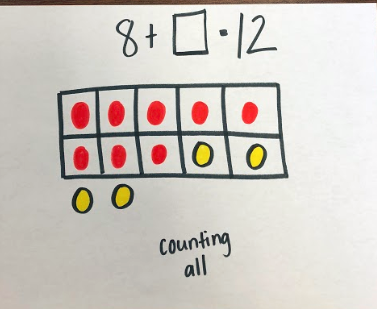 8 + □ = 12
counting
all